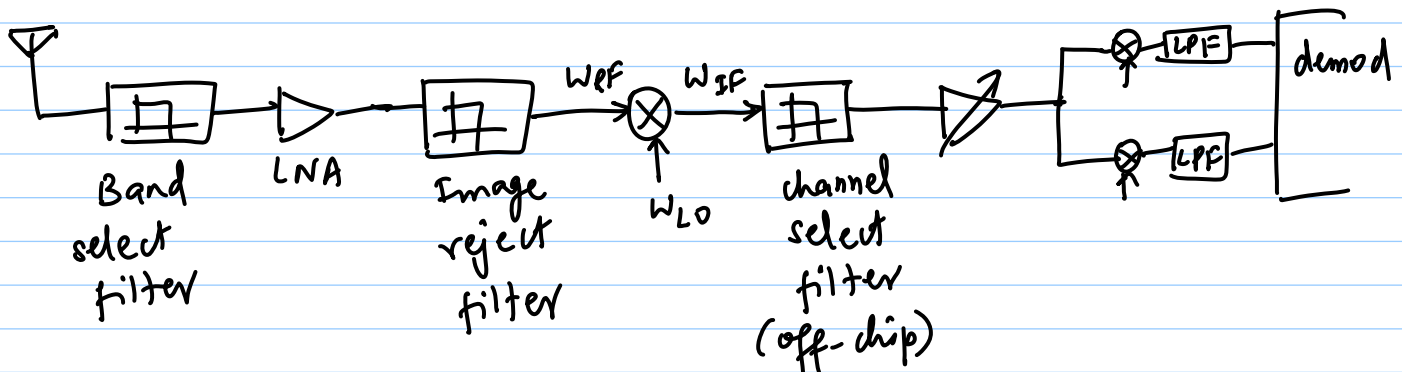 Band
select
filter
LNA
Image
reject
filter
WRF
WLO
WIF
channel
select
filter
(off-chip)
LPF
LPF
demod